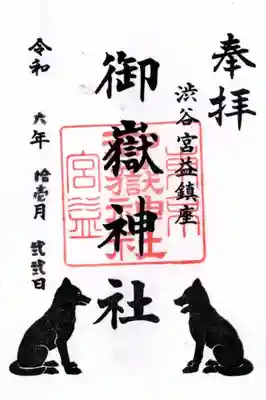 奉拝
渋谷宮益鎮座
御嶽神社
令和六年拾壱月弐弐日
東京
御嶽神社
宮益